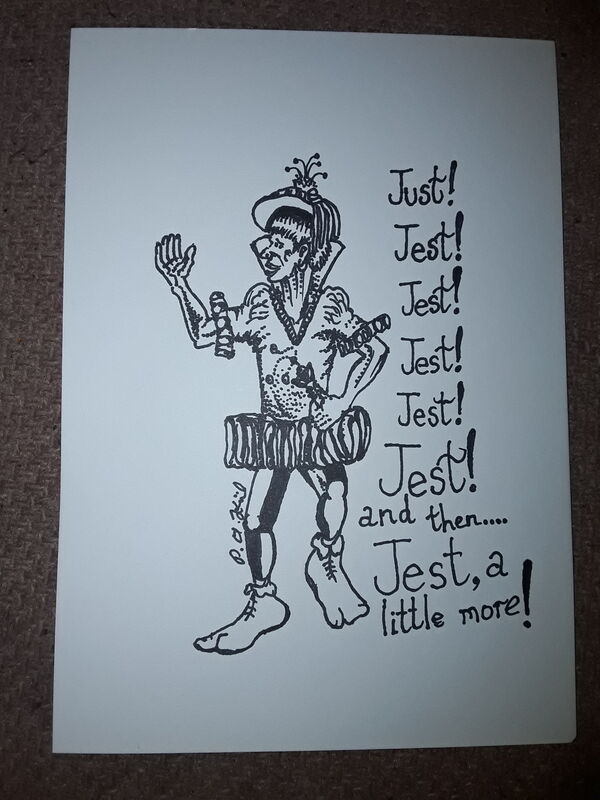 Just!
Jest!
Jest!
Jest!
Jest!
Jest!
and then....
Jest, a
little more!